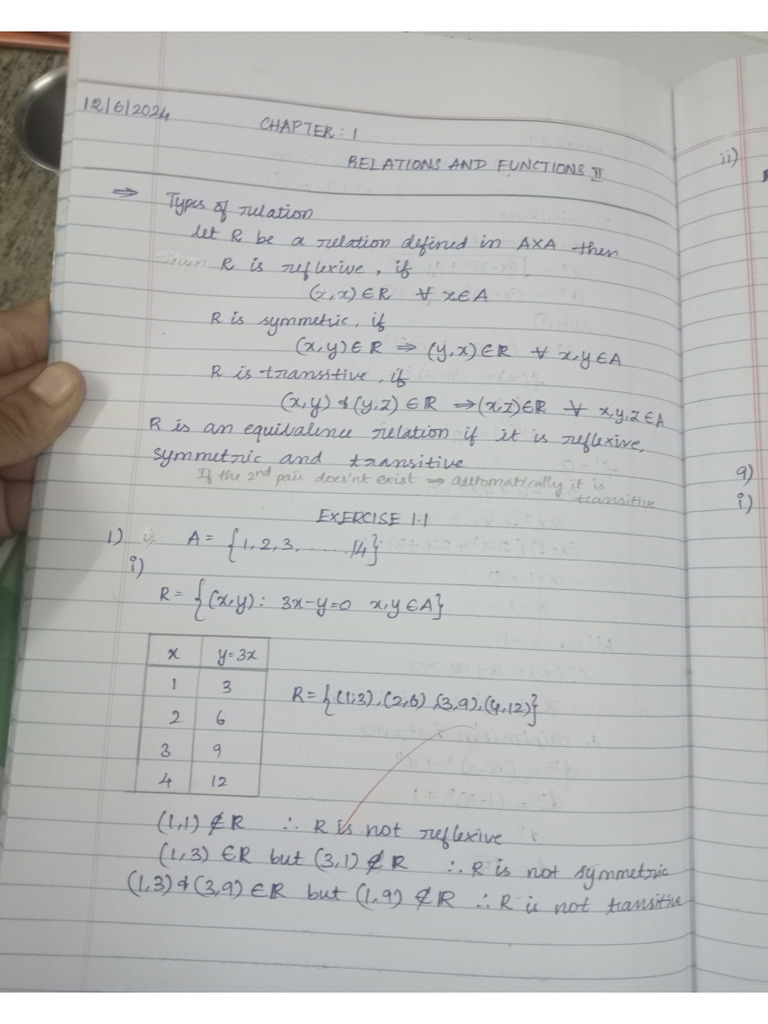 12/6/2024
CHAPTER : 1
RELATIONS AND FUNCTIONS II
⇒ Types of relation
Let R be a relation defined in A×A then
R is reflexive, if
(x,x) ∈ R ∀ x∈A
R is symmetric, if
(x,y) ∈ R ⇒ (y,x) ∈ R ∀ x,y ∈ A
R is transitive, if
(x,y) & (y,z) ∈ R ⇒ (x,z) ∈ R ∀ x,y,z ∈ A
R is an equivalence relation if it is reflexive,
symmetric and transitive
If the 2nd pair does'nt exist ⇒ automatically it is
transitive
EXERCISE 1.1
1) A = {1, 2, 3, ...... 14}
i)
R = {(x,y) : 3x-y=0 x,y ∈ A}
x y=3x
1 3
2 6
3 9
4 12
R = {(1,3), (2,6) (3,9), (4,12)}
(1,1) ∉ R ∴ R is not reflexive
(1,3) ∈ R but (3,1) ∉ R ∴ R is not symmetric
(1,3) & (3,9) ∈ R but (1,9) ∉ R ∴ R is not transitive
ii)
9)
i)